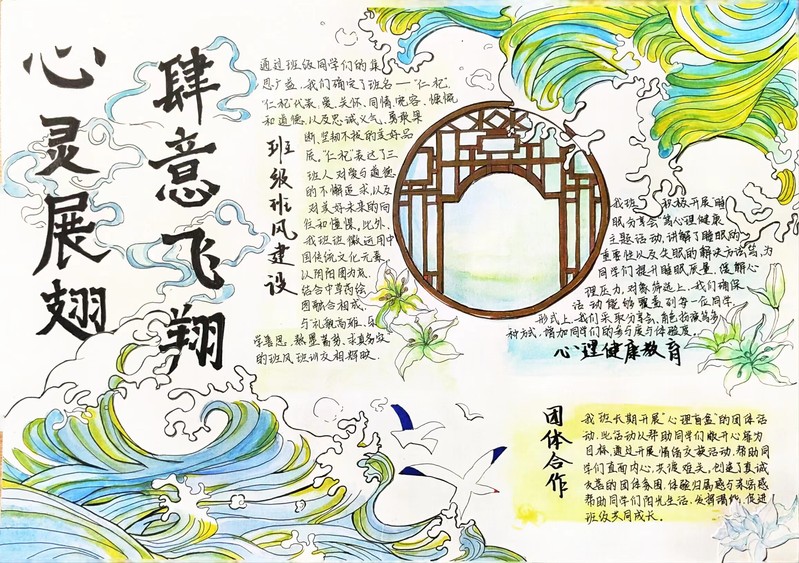 心灵展翅
肆意飞翔
班级班风建设
通过班级同学们的集
思广益，我们确定了班名——“仁杞”，
“仁杞”代表，爱、关怀、同情、宽容、慷慨
和道德，以及忠诚、义气、勇敢果
断、坚韧不拔的美好品
质。“仁杞”表达了三
班人对爱与道德
的不懈追求，以及
对美好未来的向
往和憧憬。此外，
我班班徽运用中
国传统文化元素，
以阴阳图为底，
结合中草药绘
图融合相成，
与礼貌高雅、乐
学善思、热墨蓄势、求真务实
的班风班训交相辉映。
我班 积极开展“睡
眠分享会”为心理健康
主题活动，讲解了睡眠的
重要性以及失眠的解决方法等，为
同学们提升睡眠质量，缓解心
理压力，对象筛选上，我们确保
活动能够覆盖到每一位同学，
形式上，我们采取分享会、角色扮演等多
种方式，增加同学们的参与度与体验度。
心理健康教育
团体合作
我班长期开展“心理盲盒”的团体活
动，此活动以帮助同学们敞开心扉为
目标，通过开展情绪交换活动，帮助同
学们直面内心，共渡难关，创造了真诚
友善的团体氛围，体验归属感与亲密感
帮助同学们阳光生活，发挥潜能，促进
班级共同成长。